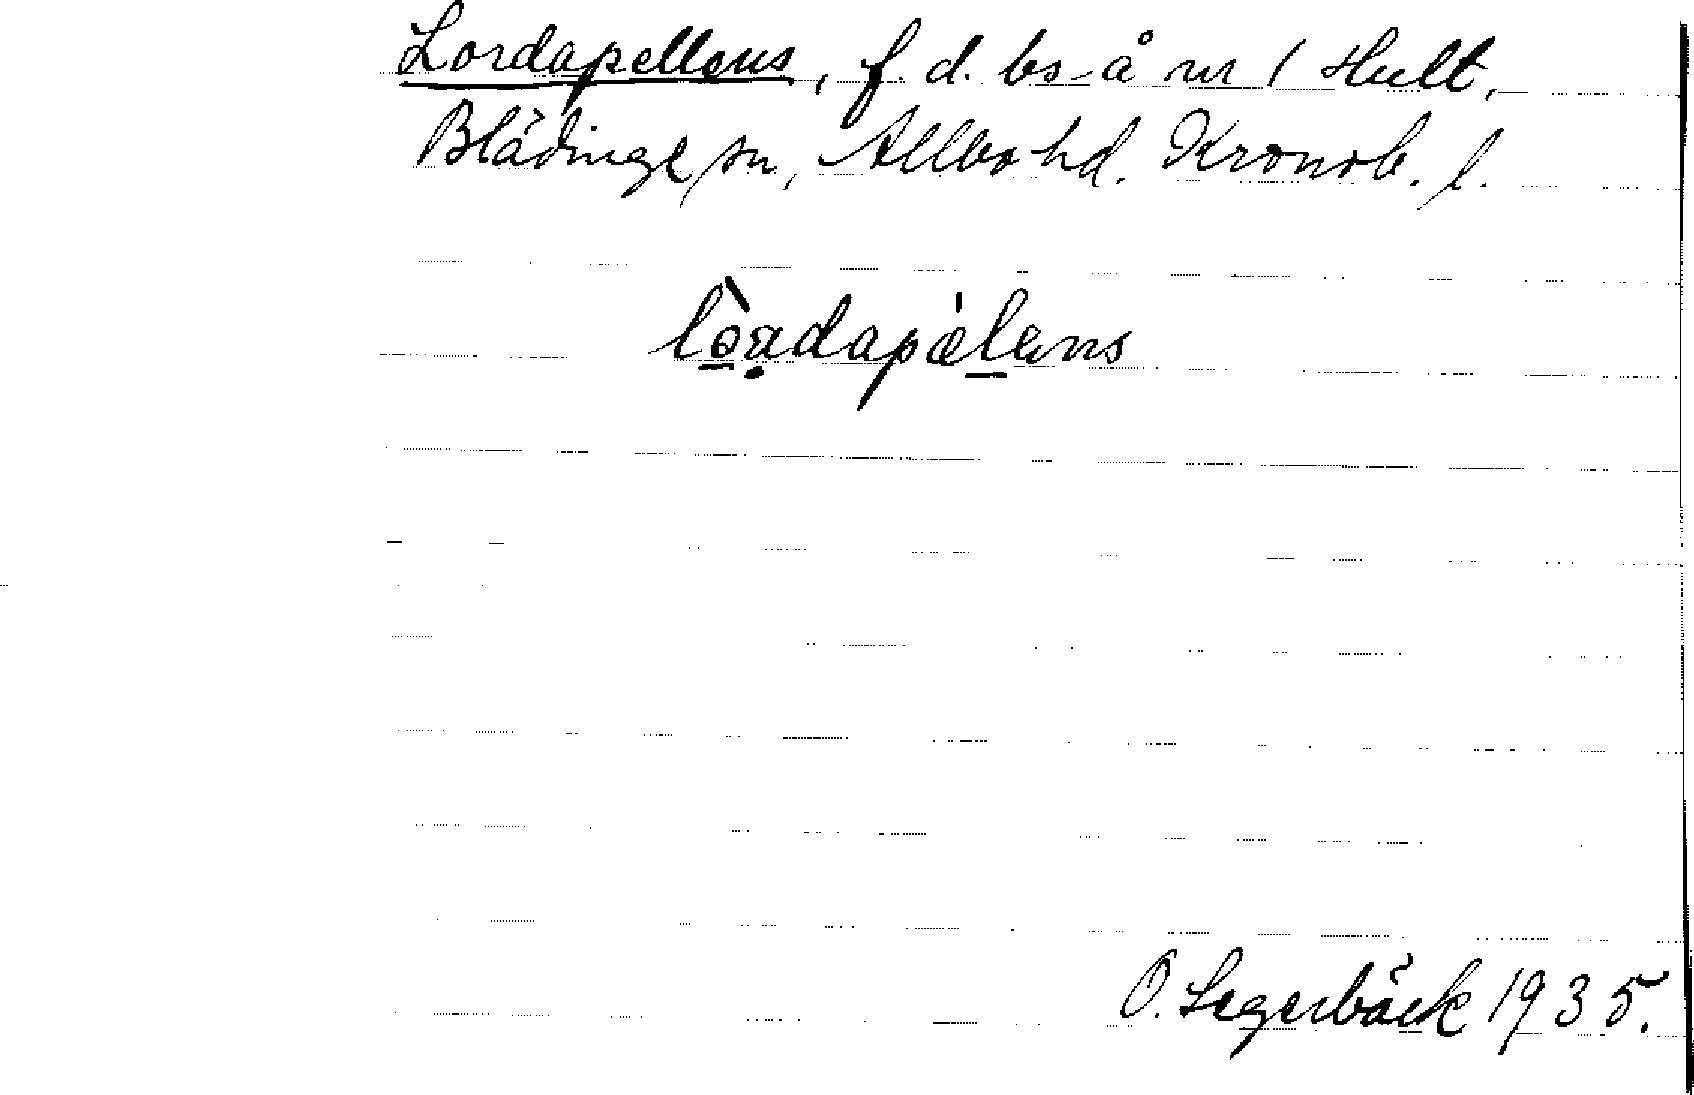 Lordapellens, f. d. bs-å nr 1 Hult,
Blädinge sn, Allbo hd. Kronob. l.
O. Segerbäck 1935.